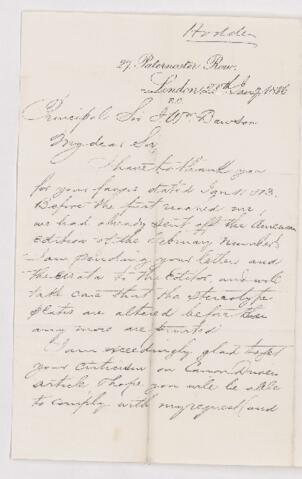 Hodder
27, Paternoster Row,
London, 28th Jany 1886
E.C.
Principal Sir J Wm Dawson
My dear Sir
I have to thank you
for your favor dated Jany 11 & 13.
Before the first reached me,
we had already sent off the American
edition of the February number.
I am sending your letters and
the errata to the Editor, and will
take care that the stereotype
plates are altered before
any more are printed
I am exceedingly glad to get
your criticism on Canon Drivers
article I hope you will be able
to comply with my request (and